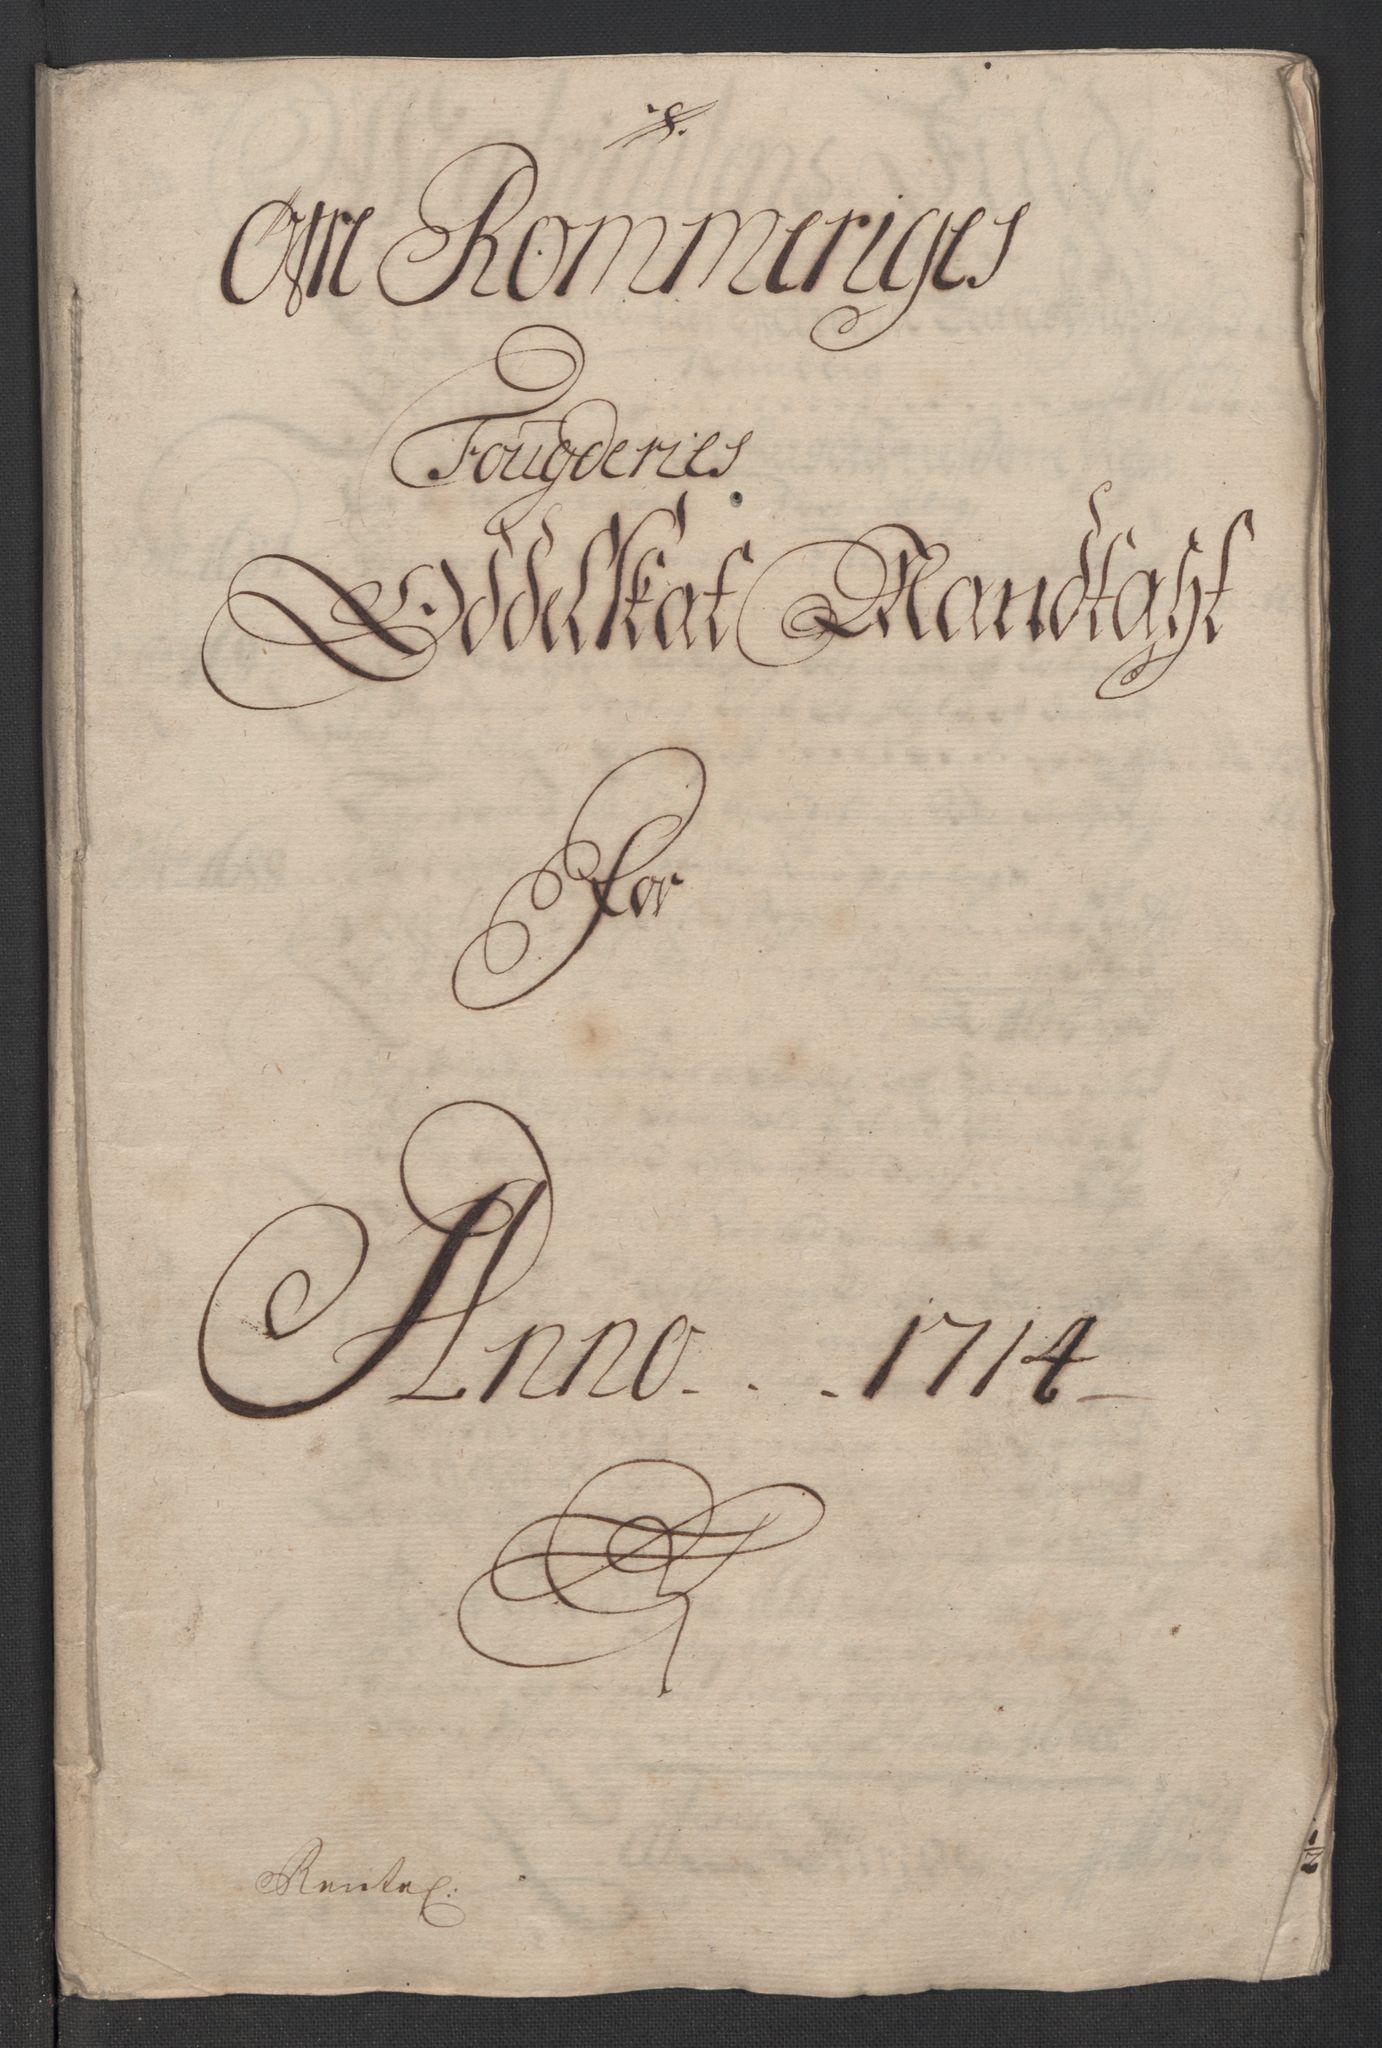 8.
Øfre Rommeriges
Fougderies
Oddelskat Mandtahl
For
Anno . . . 1714
RenteC: